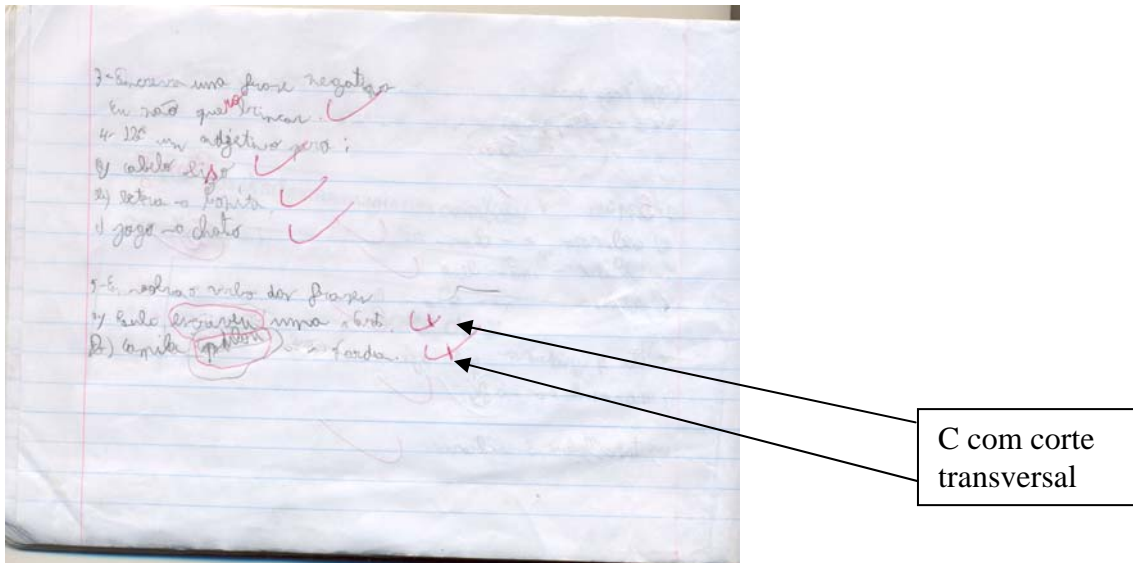 3- Escreva uma frase negativa
Eu não quero brincar.
4- Dê um adjetivo para:
a) cabelo liso
b) letra → bonita
c) jogo → chato
5- E o verbo das frases
a) Paulo escreveu uma
b) Camila pulou a corda.
C com corte
transversal